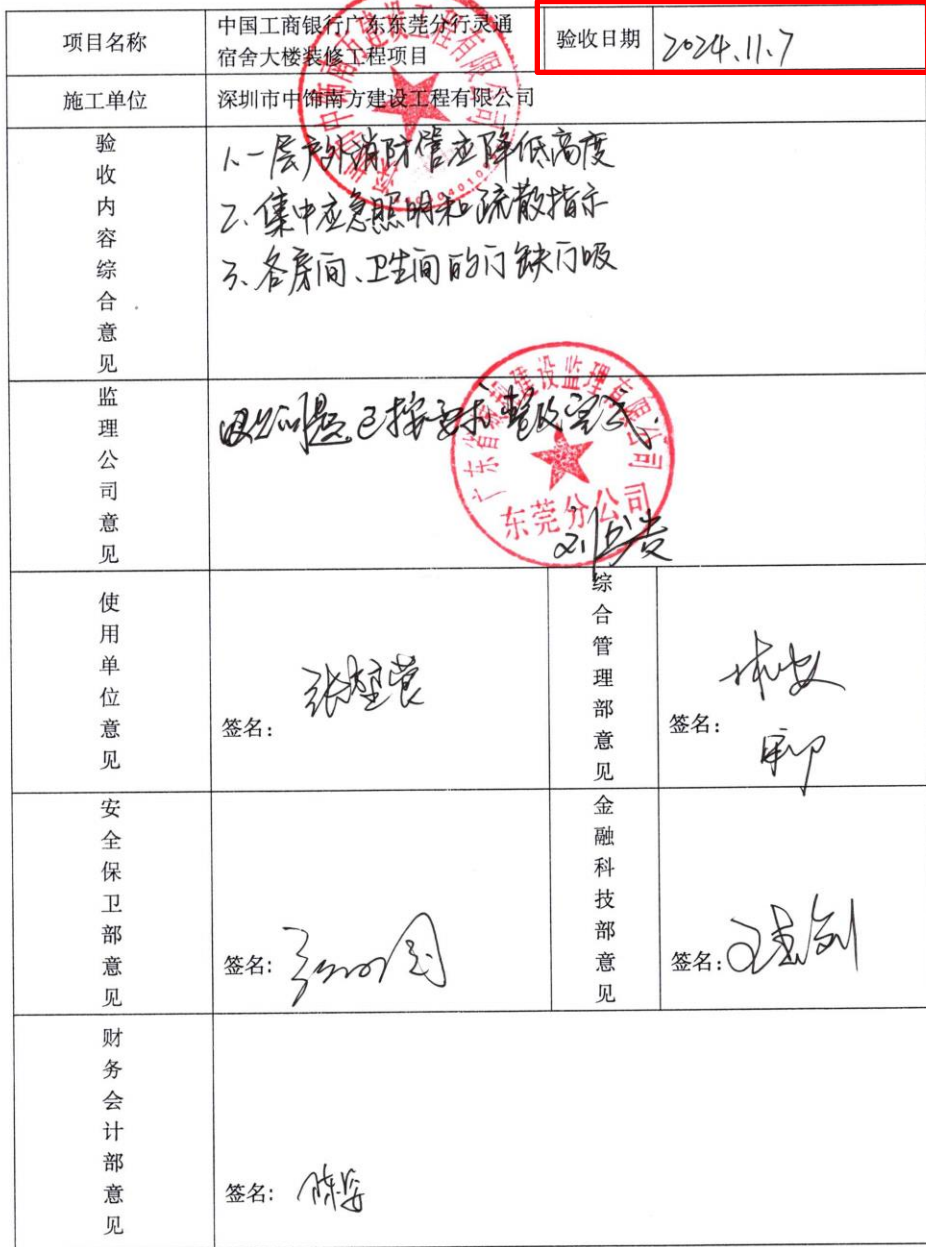 项目名称
中国工商银行广东东莞分行灵通
宿舍大楼装修工程项目
验收日期
2024.11.7
施工单位
深圳市中饰南方建设工程有限公司
验收内容综合意见
1、一层户外消防管应降低高度
2、集中应急照明和疏散指示
3、各房间、卫生间的门缺门吸
监理公司意见
以上问题已按要求整改完成.
东莞分公司
使用单位意见
签名:
综合管理部意见
签名:
安全保卫部意见
签名:
金融科技部意见
签名:
财务会计部意见
签名: